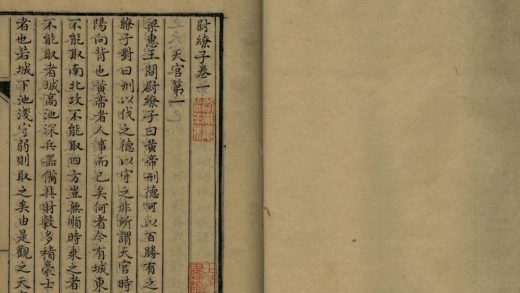 尉繚子卷一
天官第一
梁惠王問尉繚子曰黃帝刑德可以百勝有之
繚子對曰刑以伐之德以守之非所謂天官時
陽向背也黃帝者人事而已矣何者今有城東
不能取南北攻不能取四方豈無順時乘之者
不能取者城高池深兵器備具財穀多積豪士
者也若城下池淺守弱則取之矣由是觀之天官